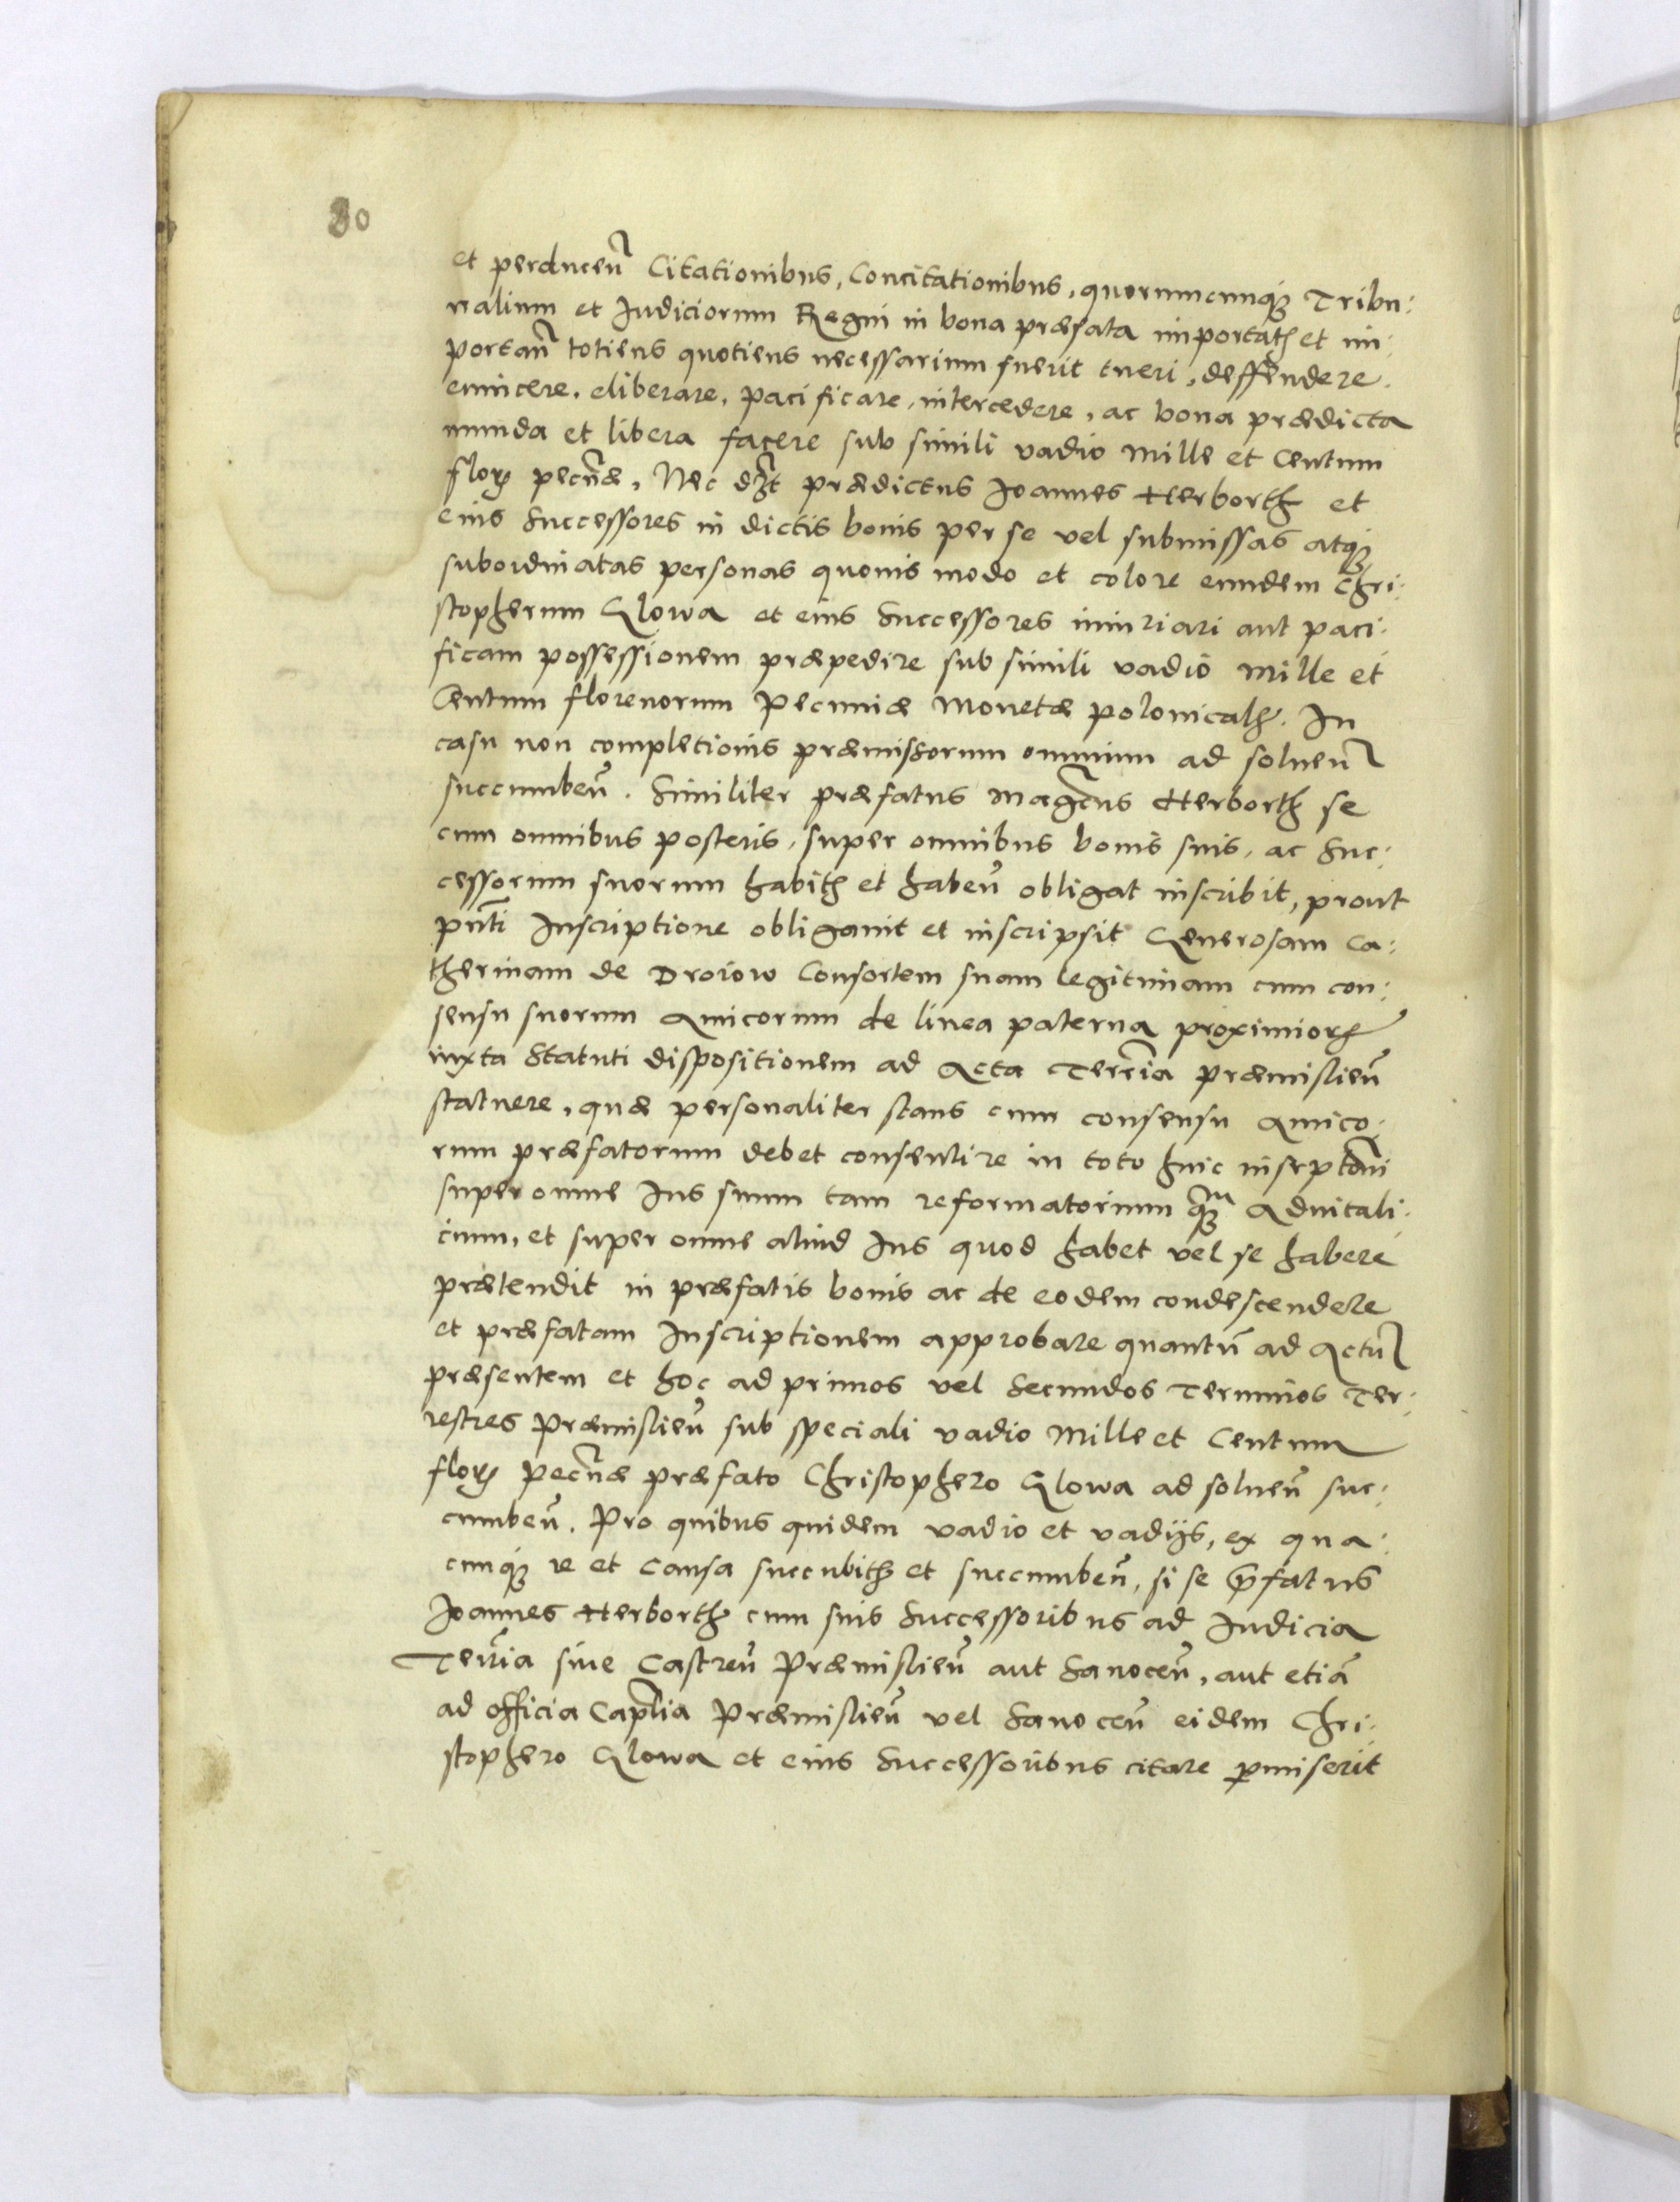 80
et perducen̄ Citationibus, Concitationibus, quorumcunqꝫ Tribu:
nalium et Iudiciorum Regni in bona præfata importatꝭ et im:
portan̄ totiens quotiens necessarium fuerit tueri, deffendere.
euincere, eliberare, pacificare, intercedere, ac bona prædicta
munda et libera facere sub simili vadio Mille et Centum
florꝭ pecūæ, Nec dꝫt prædictus Joannes Herborth et
eius Successores in dictis bonis per se vel submissas atqꝫ
subordinatas personas quouis modo et colore eundem Chri:
stopherum Glowa et eius Successores iniuriari aut paci:
ficam possessionem præpedire sub simili vadio Mille et
Centum florenorum Pecuniæ Monetæ polonicalꝭ. In
casu non completionis præmissorum omnium ad soluen̄
succumben̄. Similiter præfatus Magc̄us Herborth se
cum omnibus posteris, super omnibus bonis suis, ac Suc:
cessorum suorum habitꝭ et haben̄ obligat inscribit, prout
pn̄ti Inscriptione obligauit et inscripsit Generosam Ca:
therinam de Droiow Consortem suam legitimam cum con:
sensu suorum Amicorum de linea paterna proximiorꝭ
iuxta Statuti dispositionem ad Acta Terr̄ia Præmislien̄
statuere, quæ personaliter stans cum consensu Amico:
rum præfatorum debet consentire in toto huic inscptōni
super omne Ius suum tam reformatorium qꝫm Aduitali:
cium, et super omne aliud Ius quod habet vel se habere
prætendit in præfatis bonis ac de eodem condescendere
et præfatam Inscriptionem approbare quantū ad Actū
præsentem et hoc ad primos vel Secundos Terminos Ter:
restres Præmislien̄ sub speciali vadio Mille et Centum
florꝭ pecūæ præfato Christophero Glowa ad soluen̄ suc:
cumben̄. Pro quibus quidem vadio et vadijs, ex qua:
cunqꝫ re et Causa succubitꝭ et succumben̄, si se p̄fatus
Joannes Herborth cum suis Successoribus ad Iudicia
Terr̄ia siue Castren̄ Præmislien̄ aut Sanocen̄, aut etiā
ad officia Capl̄ia Præmislien̄ vel Sanocen̄ eidem Chri:
stophero Glowa et eius Successoribus citare ꝑmiserit